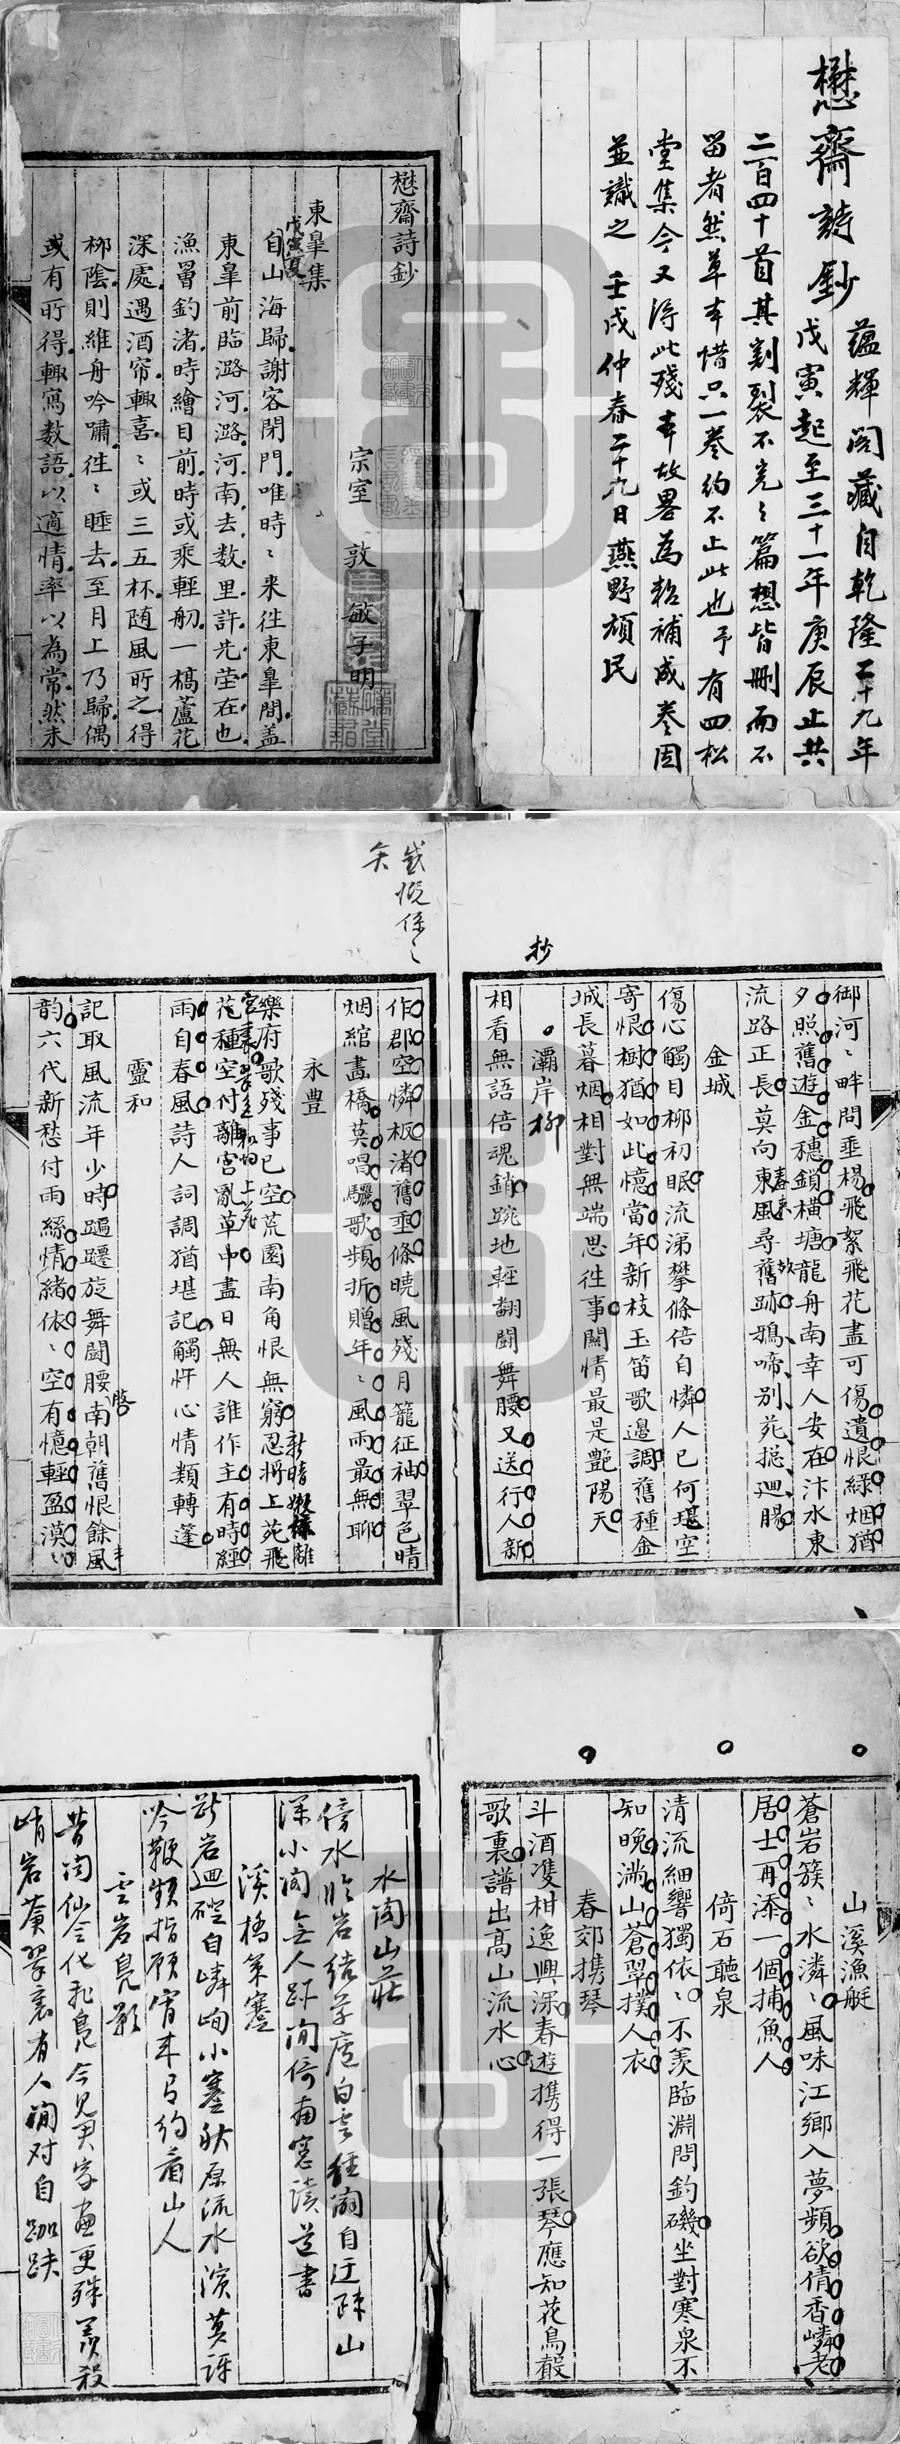 懋齋詩鈔
蘊輝閣藏自乾隆二十九年
戊寅起至三十一年庚辰止共
二百四十首其割裂不完之篇想皆刪而不
留者然草本惜只一卷約不止此也予有四松
堂集今又得此殘本故畧為粘補成卷因
並識之 壬戌仲春二十九日燕野頑民
懋齋詩鈔
宗室 敦敏子明
東皐集
戊寅夏
自山海歸謝客閉門唯時〻來往東皐間盖
東皐前臨潞河潞河南去数里許先塋在也
漁罾釣渚時繪目前時或乘輕舠一槁蘆花
深處遇酒帘輙喜〻或三五杯随風所之得
柳陰則維舟吟嘯往〻睡去至月上乃歸偶
或有所得輙寫数語以適情率以為常然未
抄
御河〻畔問垂楊飛絮飛花盡可傷遺恨綠烟猶
夕照舊遊金穗鎖橫塘龍舟南幸人安在汴水東
流路正長莫向東風尋舊跡鴉啼別苑摠廻腸
金城
傷心觸目柳初眠流涕攀條倍自憐人已何堪空
寄恨樹猶如此憶當年新枝玉笛歌邊調舊種金
城長暮烟相對無端思往事關情最是艷陽天
灞岸柳
相看無語倍魂銷踠地輕翻鬪舞腰又送行人新
感慨係〻
矣
作郡空憐板渚舊垂條曉風殘月籠征袖翠色晴
烟綰畫橋莫唱驪歌頻折贈年〻風雨最無聊
永豊
樂府歌殘事已空荒園南角恨無窮忍將上苑飛
花種空付離宮亂草中盡日無人誰作主有時經
雨自春風詩人詞調猶堪記觸忤心情類轉蓬
靈和
記取風流年少時蹁躚旋舞鬪腰南朝舊恨餘風
韵六代新愁付雨絲情緒依〻空有憶輕盈漠〻
山溪漁艇
蒼岩簇〻水潾〻風味江鄉入夢頻欲倩香嶙老
居士再添一個捕魚人
倚石聽泉
清流細響獨依〻不羨臨淵問釣磯坐對寒泉不
知晚滿山蒼翠撲人衣
春郊携琴
斗酒雙柑逸興深春遊携得一張琴應知花鳥骰
歌裏譜出髙山流水心
水閣山莊
傍水臨岩結草廬白雲種瀚自迂疎山
深小閣無人到閒倚南窓讀道書
溪橋策蹇
岩廻磴自嶙峋小蹇秋原流水濱莫訝
吟鞭頻指顧宵來有約看山人
雲岩鳧影
昔聞仙令化飛鳧今見君家畫更殊羨殺
峭岩蒼翠裏有人閒对自跏趺